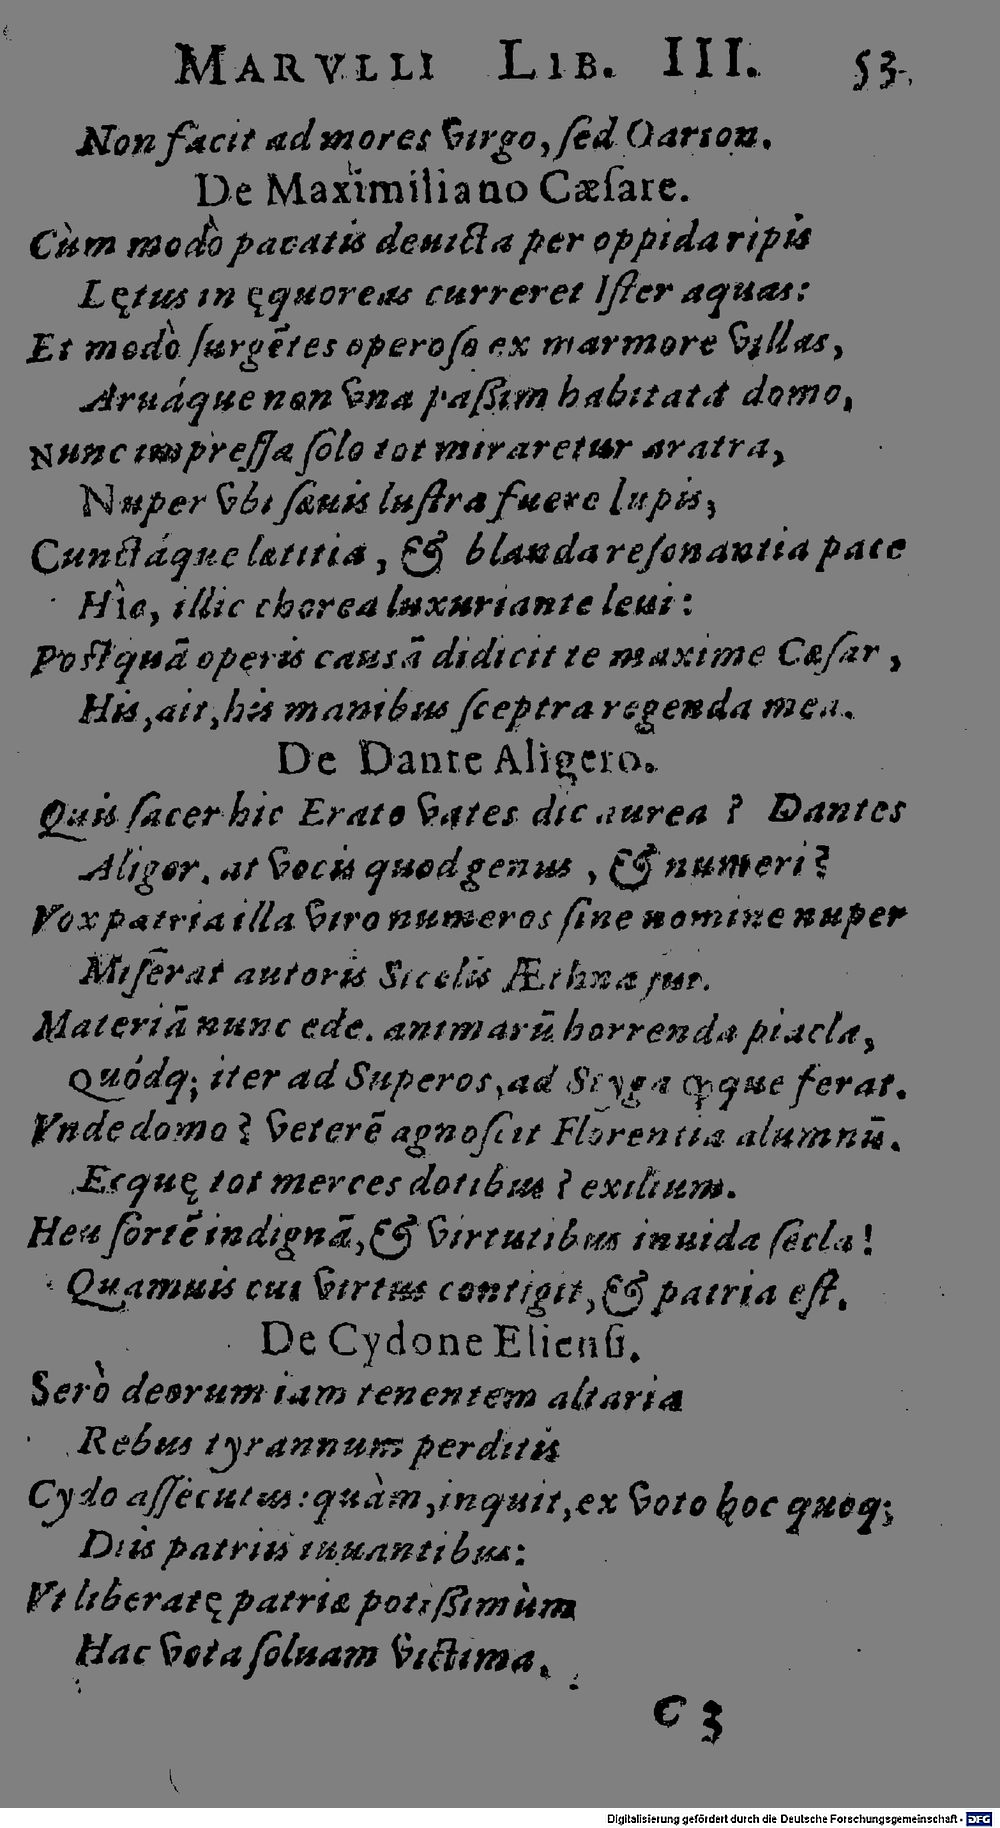 MARVLLI LIB. III. 53.
Non facit ad mores virgo, ſed Oarion.
De Maximiliano Cæſare.
Cùm modò pacatis deuicta per oppida ripis
Lętus in ęquoreas curreret Iſter aquas:
Et modò ſurgẽtes operoſo ex marmore villas,
Aruáque non vna paßim habitata domo,
Nunc impreſſa ſolo tot miraretur aratra,
Nuper vbi ſæuis luſtra fuere lupis,
Cunctáque lætitia, & blanda reſonantia pace
Hîc, illic chorea luxuriante leui:
Poſtquã operis causã didicit te maxime Cæſar,
His, ait, his manibus ſceptra regenda mea.
De Dante Aligero.
Quis ſacer hic Erato vates dic aurea? Dantes
Aliger. at vocis quod genus, & numeri?
Vox patria illa viro numeros ſine nomine nuper
Miſerat autoris Sicelis Æthna ſui.
Materiã nunc ede. animarũ horrenda piacla,
Quódq; iter ad Superos, ad Styga quque ferat.
Vnde domo? veterẽ agnoſcit Florentia alumnũ.
Ecquę tot merces dotibus? exilium.
Heu ſortẽ indignã, & virtutibus inuida ſecla!
Quamuis cui virtus contigit, & patria eſt.
De Cydone Elienſi.
Serò deorum iam tenentem altaria
Rebus tyrannum perditis
Cydo aſſecutus: quàm, inquit, ex voto hoc quoq;
Diis patriis iuuantibus:
Vt liberatę patriæ potißimùm
Hac vota ſoluam victima.
C 3
Digitalisierung gefördert durch die Deutsche Forschungsgemeinschaft - DFG